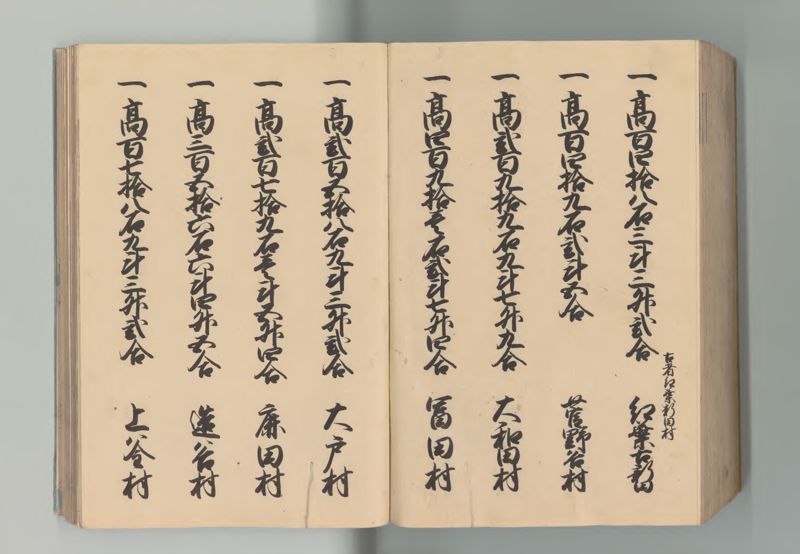 一高百四拾八石三斗三升弐合 古者紅葉新田村 紅葉古新田
一高百四拾九石弐斗五合 菅野谷村
一高弐百九拾九石九斗七升九合 大和田村
一高四百九拾壱石弐斗七升四合 冨田村
一高弐百五拾八石九斗三升弐合 大戸村
一高弐百七拾九石壱斗五升四合 麻田村
一高三百五拾六石六斗四升五合 造谷村
一高百七拾八石九斗三升弐合 上釜村